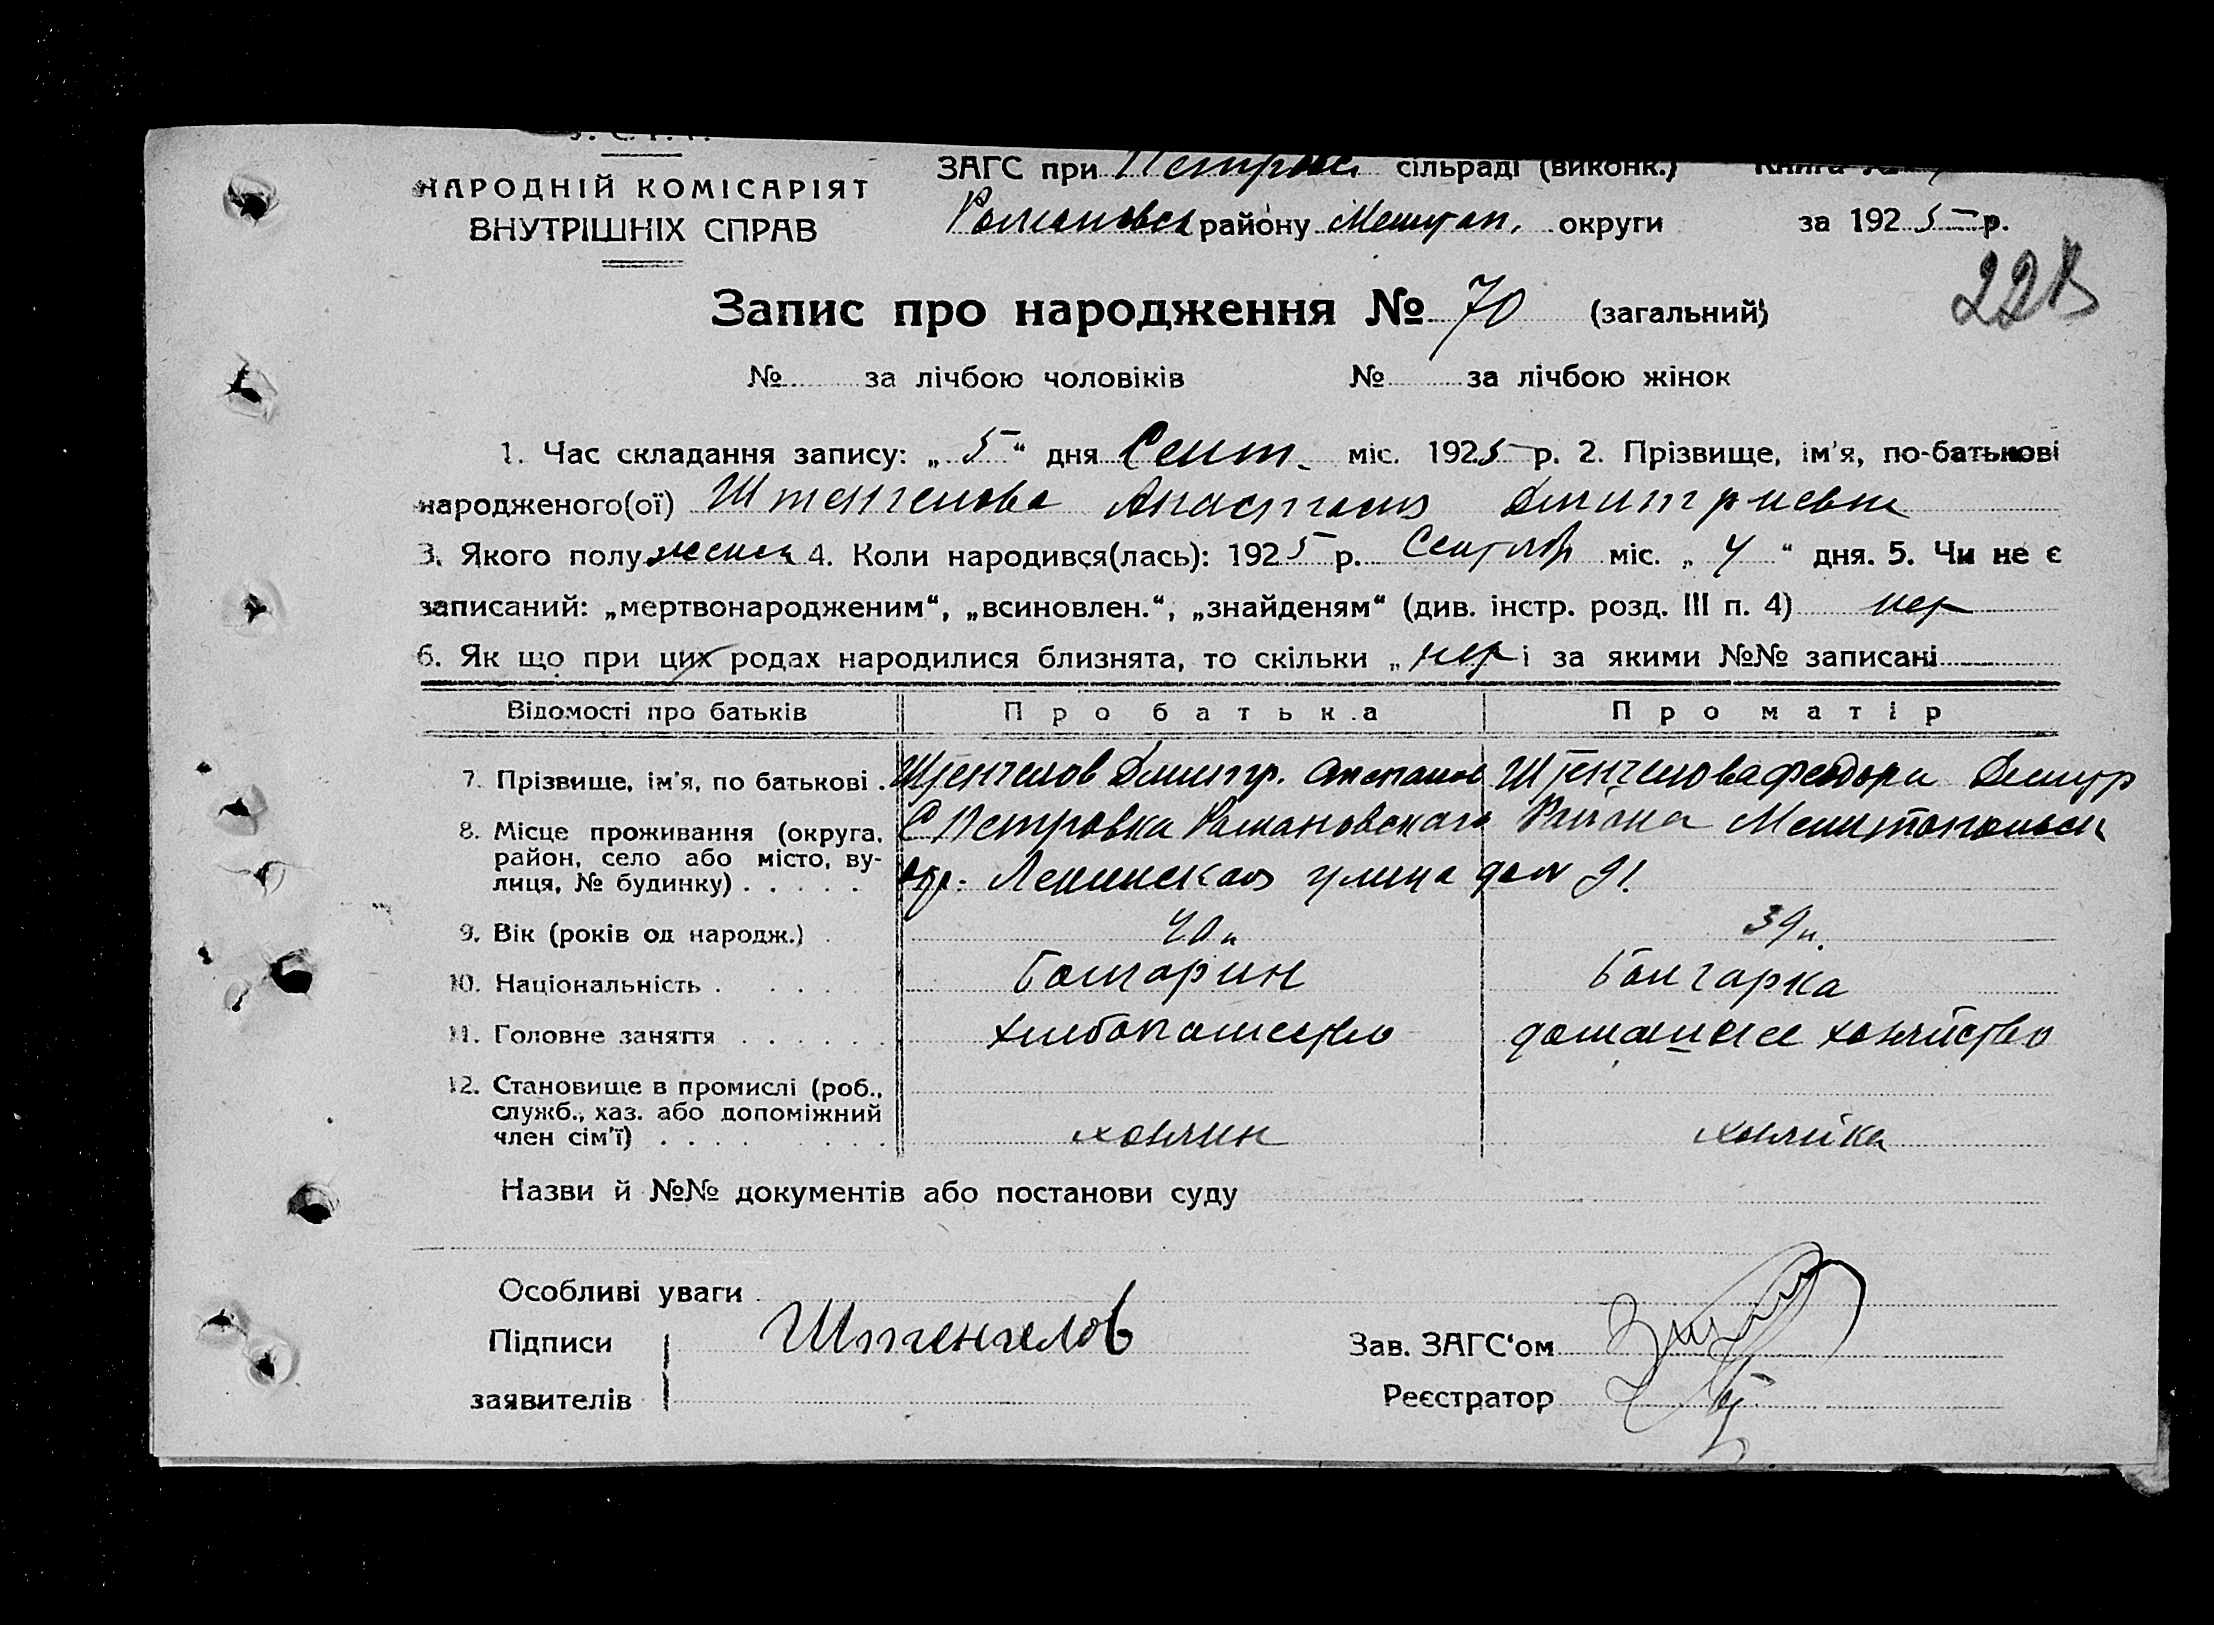 У. С. Р. Р.
НАРОДНІЙ КОМІСАРІЯТ
ВНУТРІШНІХ СПРАВ
ЗАГС при Петров сільраді (виконк.) Книга №
Романовск району Мелитоп. округи за 1925 р.
Запис про народження № 70 (загальний)
№ за лічбою чоловіків № за лічбою жінок
1. Час складання запису: „5“ дня Сент. міс. 1925 р. 2. Прізвище, ім'я, по-батькові
народженого(ої) Штенгелова Анастасия Дмитриевна
3. Якого полу женск 4. Коли народився(лась): 1925 р. Сентябр міс. „4“ дня. 5. Чи не є
записаний: „мертвонародженим“, „всиновлен.“, „знайденям“ (див. інстр. розд. III п. 4) нет
6. Як що при цих родах народилися близнята, то скільки „нет і за якими №№ записані
Відомості про батьків Про батька Про матір
7. Прізвище, ім'я, по батькові . Штенгелов Дмитр. Степанов Штенгелова Федора Дмитр
8. Місце проживання (округа, С Петровка Романовскаго Района Мелитопольск
район, село або місто, ву-
лиця, № будинку) . . . . . Окр. Ленинская улица дом 91.
9. Вік (років од народж.) . 40 л 39 л.
10. Національність . . . . . Болгарин Болгарка
11. Головне заняття . . . . . . хлебопашество домашнее хозяйство
12. Становище в промислі (роб.,
служб., хаз. або допоміжний
член сім'ї) . . . . . . . . хозяин хозяйка
Назви й №№ документів або постанови суду
Особливі уваги
Підписи Штенгелов Зав. ЗАГС'ом
заявителів Реєстратор